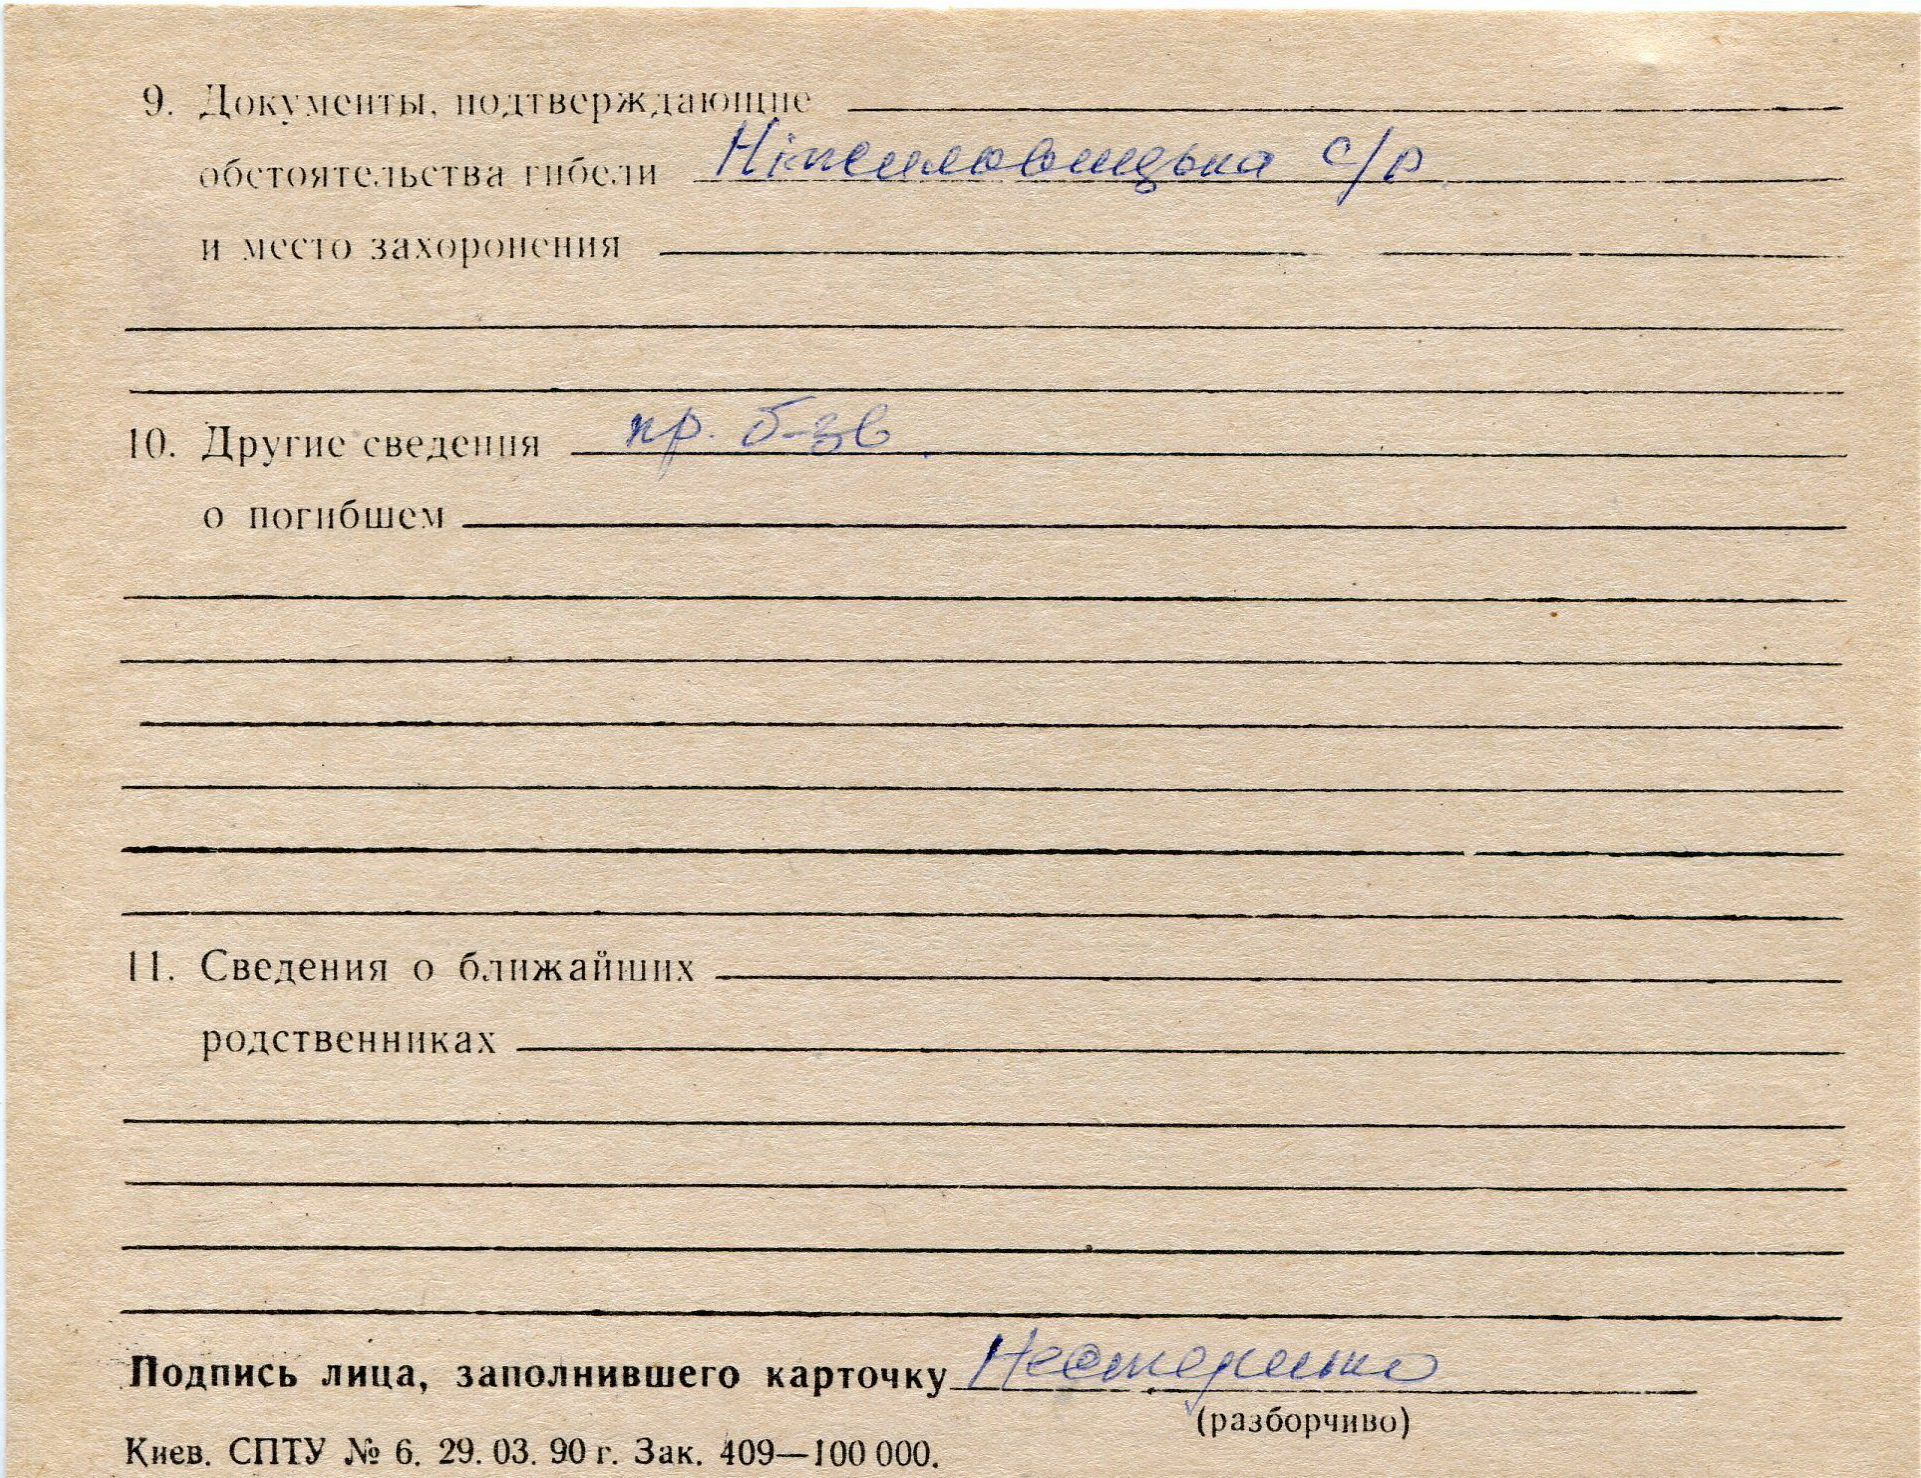 9. Документы, подтверждающие
обстоятельства гибели Ніжиловицька с/р
и место захоронения
10. Другие сведения пр. б-зв
о погибшем
11. Сведения о ближайших
родственниках
Подпись лица, заполнившего карточку Нестеренко
(разборчиво)
Киев. СПТУ № 6. 29. 03. 90 г. Зак. 409—100 000.